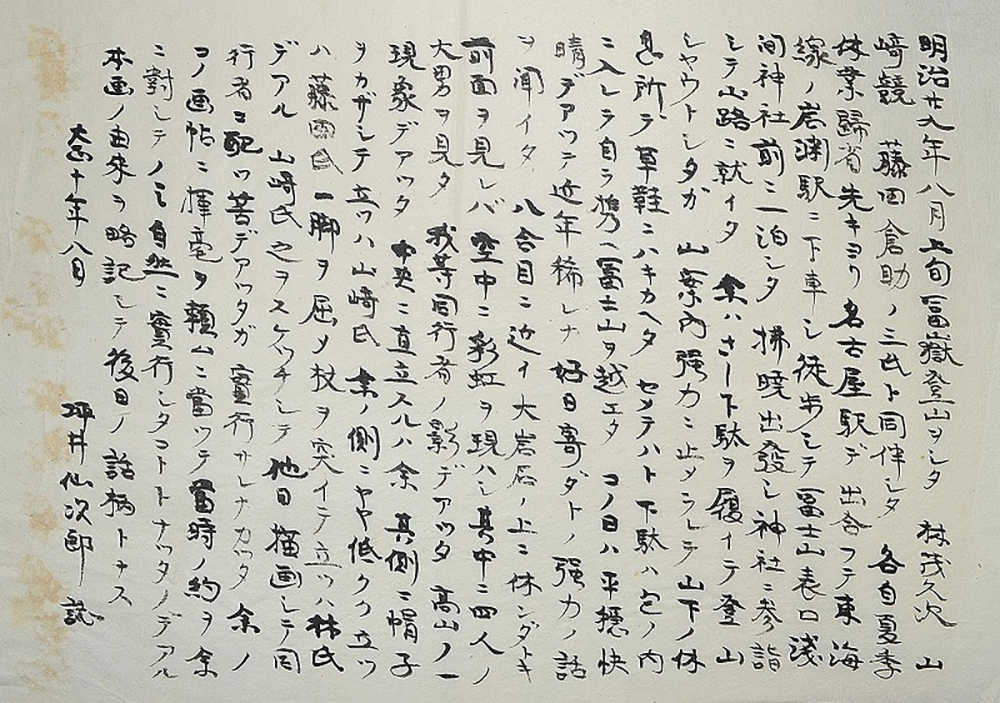 明治廿九年八月上旬冨嶽登山ヲシタ 林茂久次 山
崎競 藤田倉助ノ三氏ト同伴シタ 各自夏季
休業歸省先キヨリ名古屋駅デ出会フテ東海
線ノ岩渕駅ニ下車シ徒歩シテ冨士山表口淺
间神社前ニ一泊シタ 拂曉出發シ神社ニ参詣
シテ山路ニ就イタ 余ハさし下駄ヲ履イテ登山
シヤウトシタガ 山案内強力ニ止メラレテ山下ノ休
息所テ草鞋ニハキカヘタ セメテハト下駄ハ包ノ内
ニ入レテ自ラ携ヘ冨士山ヲ越エタ コノ日ハ平穏快
晴デアツテ近年稀レナ好日寄ダトノ强力ノ話
ヲ聞イタ 八合目ニ近イ大岩石ノ上ニ休ンダトキ
前面ヲ見レバ空中ニ彩虹ヲ現ハシ其中ニ四人ノ
大男ヲ見タ 我等同行者ノ影デアツタ 高山ノ一
現象デアツタ 中央ニ直立スルハ余 其側ニ帽子
ヲカザシテ立ツハ山崎氏 余ノ側ニヤヤ低クク立ツ
ハ藤田氏 一脚ヲ屈メ杖ヲ突イテ立ツハ林氏
デアル 山崎氏之ヲスケツチシテ他日描画シテ同
行者ニ配ツ筈デアツタガ 實行サレナカツタ 余ノ
コノ画帖ニ揮毫ヲ頼ムニ當ツテ當時ノ約ヲ余
ニ對シテノミ自然ニ實行シタコトトナツタノデアル
本画ノ由来ヲ略記シテ後日ノ話柄トナス
大正十年八月 坪井仙次郎 誌